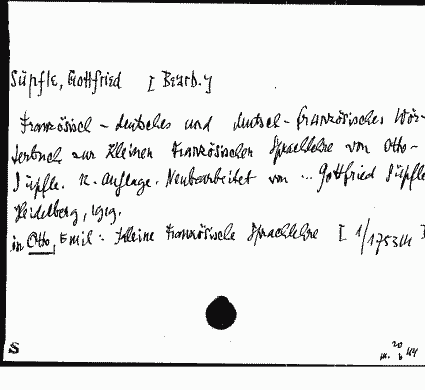 Süpfle, Gottfried [Bearb.]
Französisch-deutsches und deutsch-französisches Wör-
terbuch zur kleinen Französischen Sprachlehre von Otto-
Süpfle. 12. Auflage. Neubearbeitet von ... Gottfried Süpfle
Heidelberg, 1919.
in Otto, Emil: Kleine Französische Sprachlehre [1/1753
S